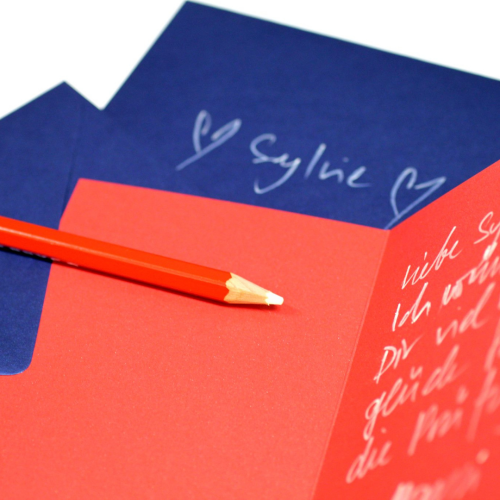 Sylvie
Liebe Sy
Ich
Dir viel
glück
die Prüf